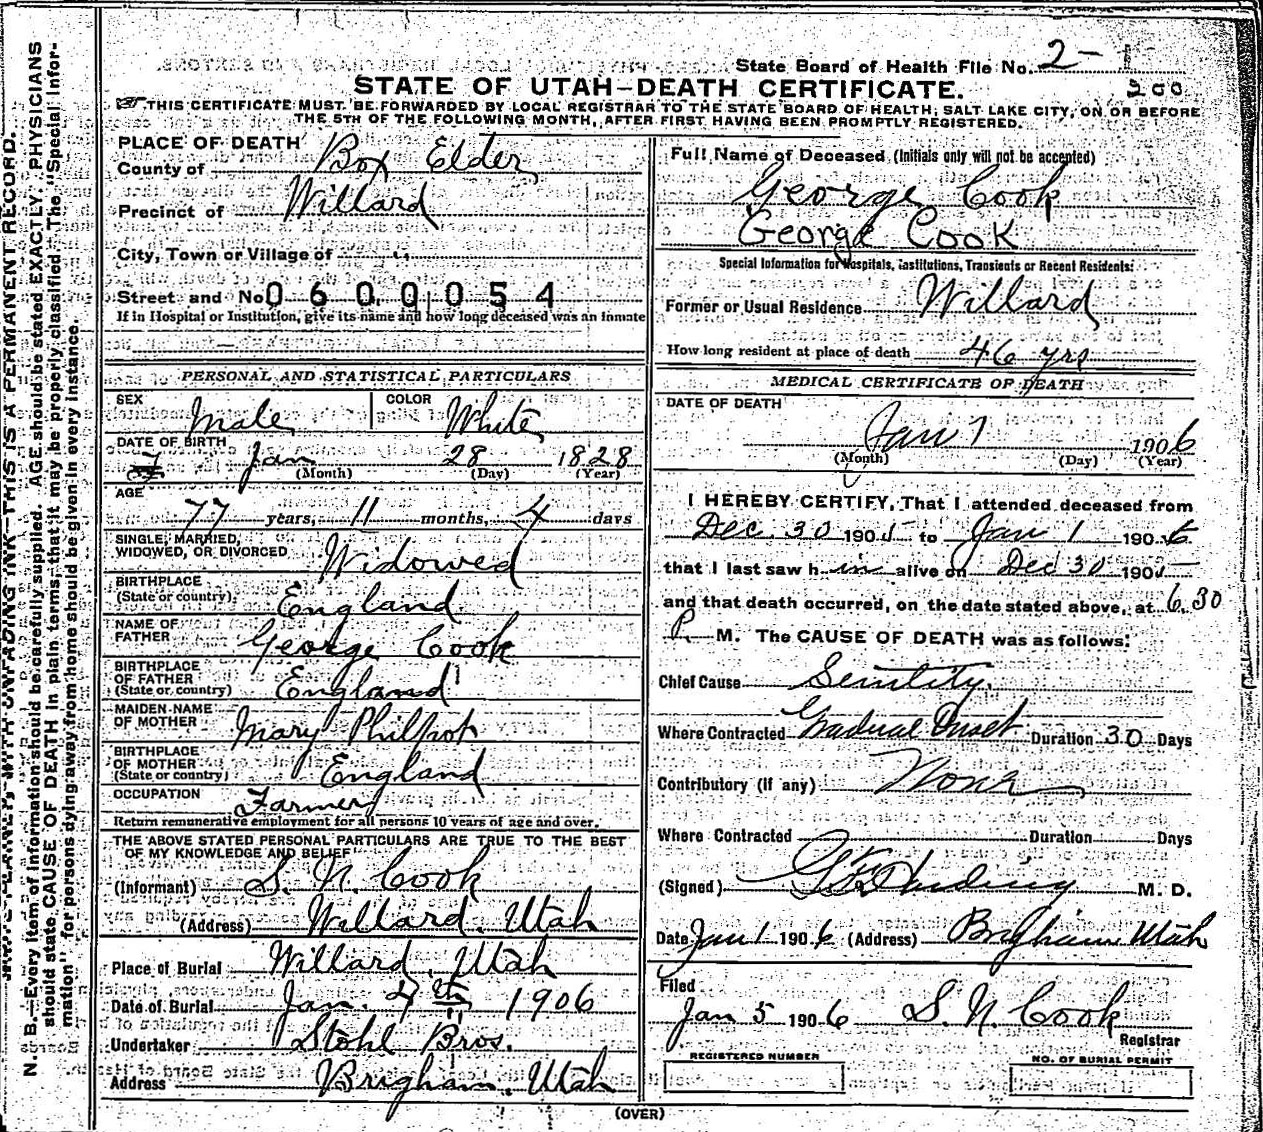 State Board of Health File No. 2-
200
STATE OF UTAH-DEATH CERTIFICATE.
THIS CERTIFICATE MUST BE FORWARDED BY LOCAL REGISTRAR TO THE STATE BOARD OF HEALTH, SALT LAKE CITY, ON OR BEFORE
THE 5TH OF THE FOLLOWING MONTH, AFTER FIRST HAVING BEEN PROMPTLY REGISTERED.
PLACE OF DEATH
County of Box Elder
Precinct of Willard
City, Town or Village of "
Street and No. 0600054
If in Hospital or Institution, give its name and how long deceased was an inmate
PERSONAL AND STATISTICAL PARTICULARS
SEX Male COLOR White
DATE OF BIRTH Jan 28 1828
(Month) (Day) (Year)
AGE 77 years, 11 months, 4 days
SINGLE, MARRIED,
WIDOWED, OR DIVORCED Widowed
BIRTHPLACE
(State or country) England
NAME OF
FATHER George Cook
BIRTHPLACE
OF FATHER
(State or country) England
MAIDEN NAME
OF MOTHER Mary Philpot
BIRTHPLACE
OF MOTHER
(State or country) England
OCCUPATION Farmer
Return remunerative employment for all persons 10 years of age and over.
THE ABOVE STATED PERSONAL PARTICULARS ARE TRUE TO THE BEST
OF MY KNOWLEDGE AND BELIEF
(Informant) S. N. Cook
(Address) Willard, Utah
Place of Burial Willard, Utah
Date of Burial Jan. 4th 1906
Undertaker Stohl Bros.
Address Brigham, Utah
Full Name of Deceased (Initials only will not be accepted)
George Cook
George Cook
Special Information for Hospitals, Institutions, Transients or Recent Residents:
Former or Usual Residence Willard
How long resident at place of death 46 yrs
MEDICAL CERTIFICATE OF DEATH
DATE OF DEATH
Jan 1 1906
(Month) (Day) (Year)
I HEREBY CERTIFY, That I attended deceased from
Dec. 30 1905 to Jan 1 1906
that I last saw him alive on Dec 30 1905
and that death occurred, on the date stated above, at 6.30
P. M. The CAUSE OF DEATH was as follows:
Chief Cause Senility.
Where Contracted Gradual Onset Duration 30 Days
Contributory (if any) None
Where Contracted Duration Days
(Signed) Harding M. D.
Date Jan 1 1906 (Address) Brigham Utah
Filed
Jan 5 1906 S. N. Cook
Registrar
REGISTERED NUMBER
NO. OF BURIAL PERMIT
(OVER)
N. B.—Every item of information should be carefully supplied. AGE should be stated EXACTLY. PHYSICIANS
should state CAUSE OF DEATH in plain terms, that it may be properly classified. The "Special Infor-
mation" for persons dying away from home should be given in every instance.
WITH UNFADING INK—THIS IS A PERMANENT RECORD.